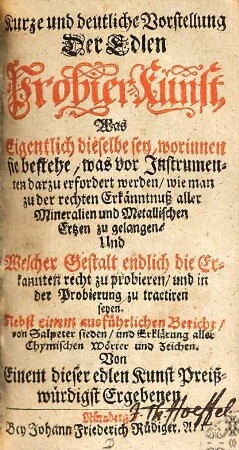 Kurze und deutliche Vorstellung
Der Edlen
Probier-Kunst,
Was
Eigentlich dieselbe sey, worinnen
sie bestehe, was vor Instrumen-
ten darzu erfordert werden/ wie man
zu der rechten Erkänntnuß aller
Mineralien und Metallischen
Ertzen zu gelangen.
Und
Welcher Gestalt endlich die Er-
kannten recht zu probieren/ und in
der Probierung zu tractiren
seyen.
Nebst einem ausführlichen Bericht/
von Salpeter sieden/ und Erklärung aller
Chymischen Wörter und Zeichen.
Von
Einem dieser edlen Kunst Preiß-
würdigst Ergebenen.
Nürnberg/
Bey Johann Friederich Rüdiger.